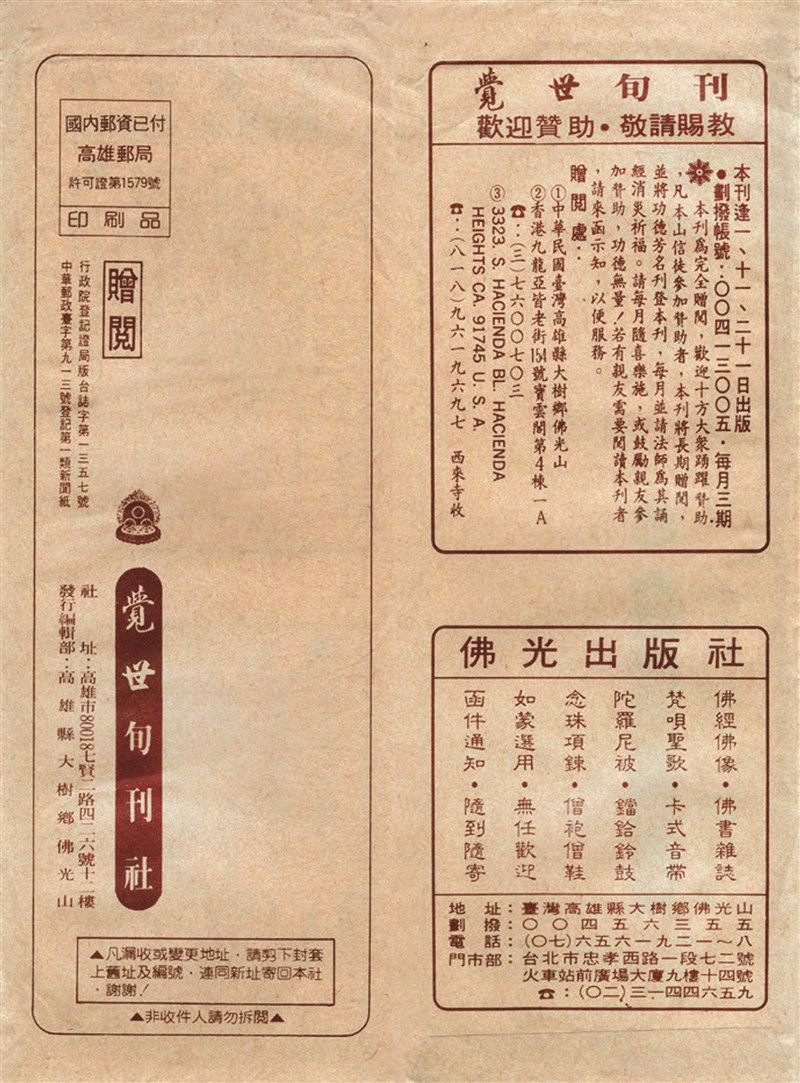 覺世旬刊
歡迎贊助•敬請賜教
本刊逢一、十一、二十一日出版
●劃撥帳號：〇〇四一三〇〇五•每月三期
本刊為完全贈閱，歡迎十方大衆踴躍贊助
，凡本山信徒參加贊助者，本刊將長期贈閱，
並將功德芳名刊登本刊，每月並請法師為其誦
經消災祈福。請每月隨喜樂施，或鼓勵親友參
加贊助，功德無量！若有親友需要閱讀本刊者
，請來函示知，以便服務。
贈閱處：
①中華民國臺灣高雄縣大樹鄉佛光山
②香港九龍亞皆老街154號寶雲閣第4棟一A
☎：(三)七六〇〇七〇三
③3323. S. HACIENDA BL. HACIENDA
HEIGHTS CA. 91745 U. S. A.
☎：(八一八)九六一九六九七 西來寺收
佛光出版社
佛經佛像•佛書雜誌
梵唄聖歌•卡式音帶
陀羅尼被•鐺鉿鈴鼓
念珠項鍊•僧袍僧鞋
如蒙選用•無任歡迎
函件通知•隨到隨寄
地　址：臺灣高雄縣大樹鄉佛光山
劃　撥：〇〇四五六三五五
電　話：(〇七)六五六一九二一～八
門市部：台北市忠孝西路一段七二號
火車站前廣場大廈九樓十四號
☎：(〇二)三一四四六五九
國內郵資已付
高雄郵局
許可證第1579號
印刷品
贈閱
行政院登記證局版台誌字第一三五七號
中華郵政臺字第九一三號登記第一類新聞紙
覺世旬刊社
社　址：高雄市80018七賢二路四二六號十二樓
發行編輯部：高雄縣大樹鄉佛光山
▲凡漏收或變更地址，請剪下封套
上舊址及編號，連同新址寄回本社
，謝謝！
▲非收件人請勿拆閱▲